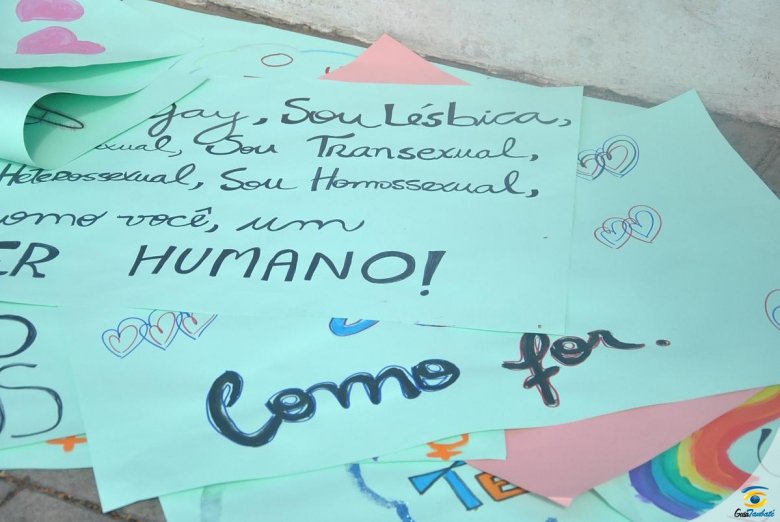 gay, Sou Lésbica,
xual, Sou Transexual,
Heterossexual, Sou Homossexual,
omo você, um
ER HUMANO!
O
OS
Como for.
TE
Guia Taubaté